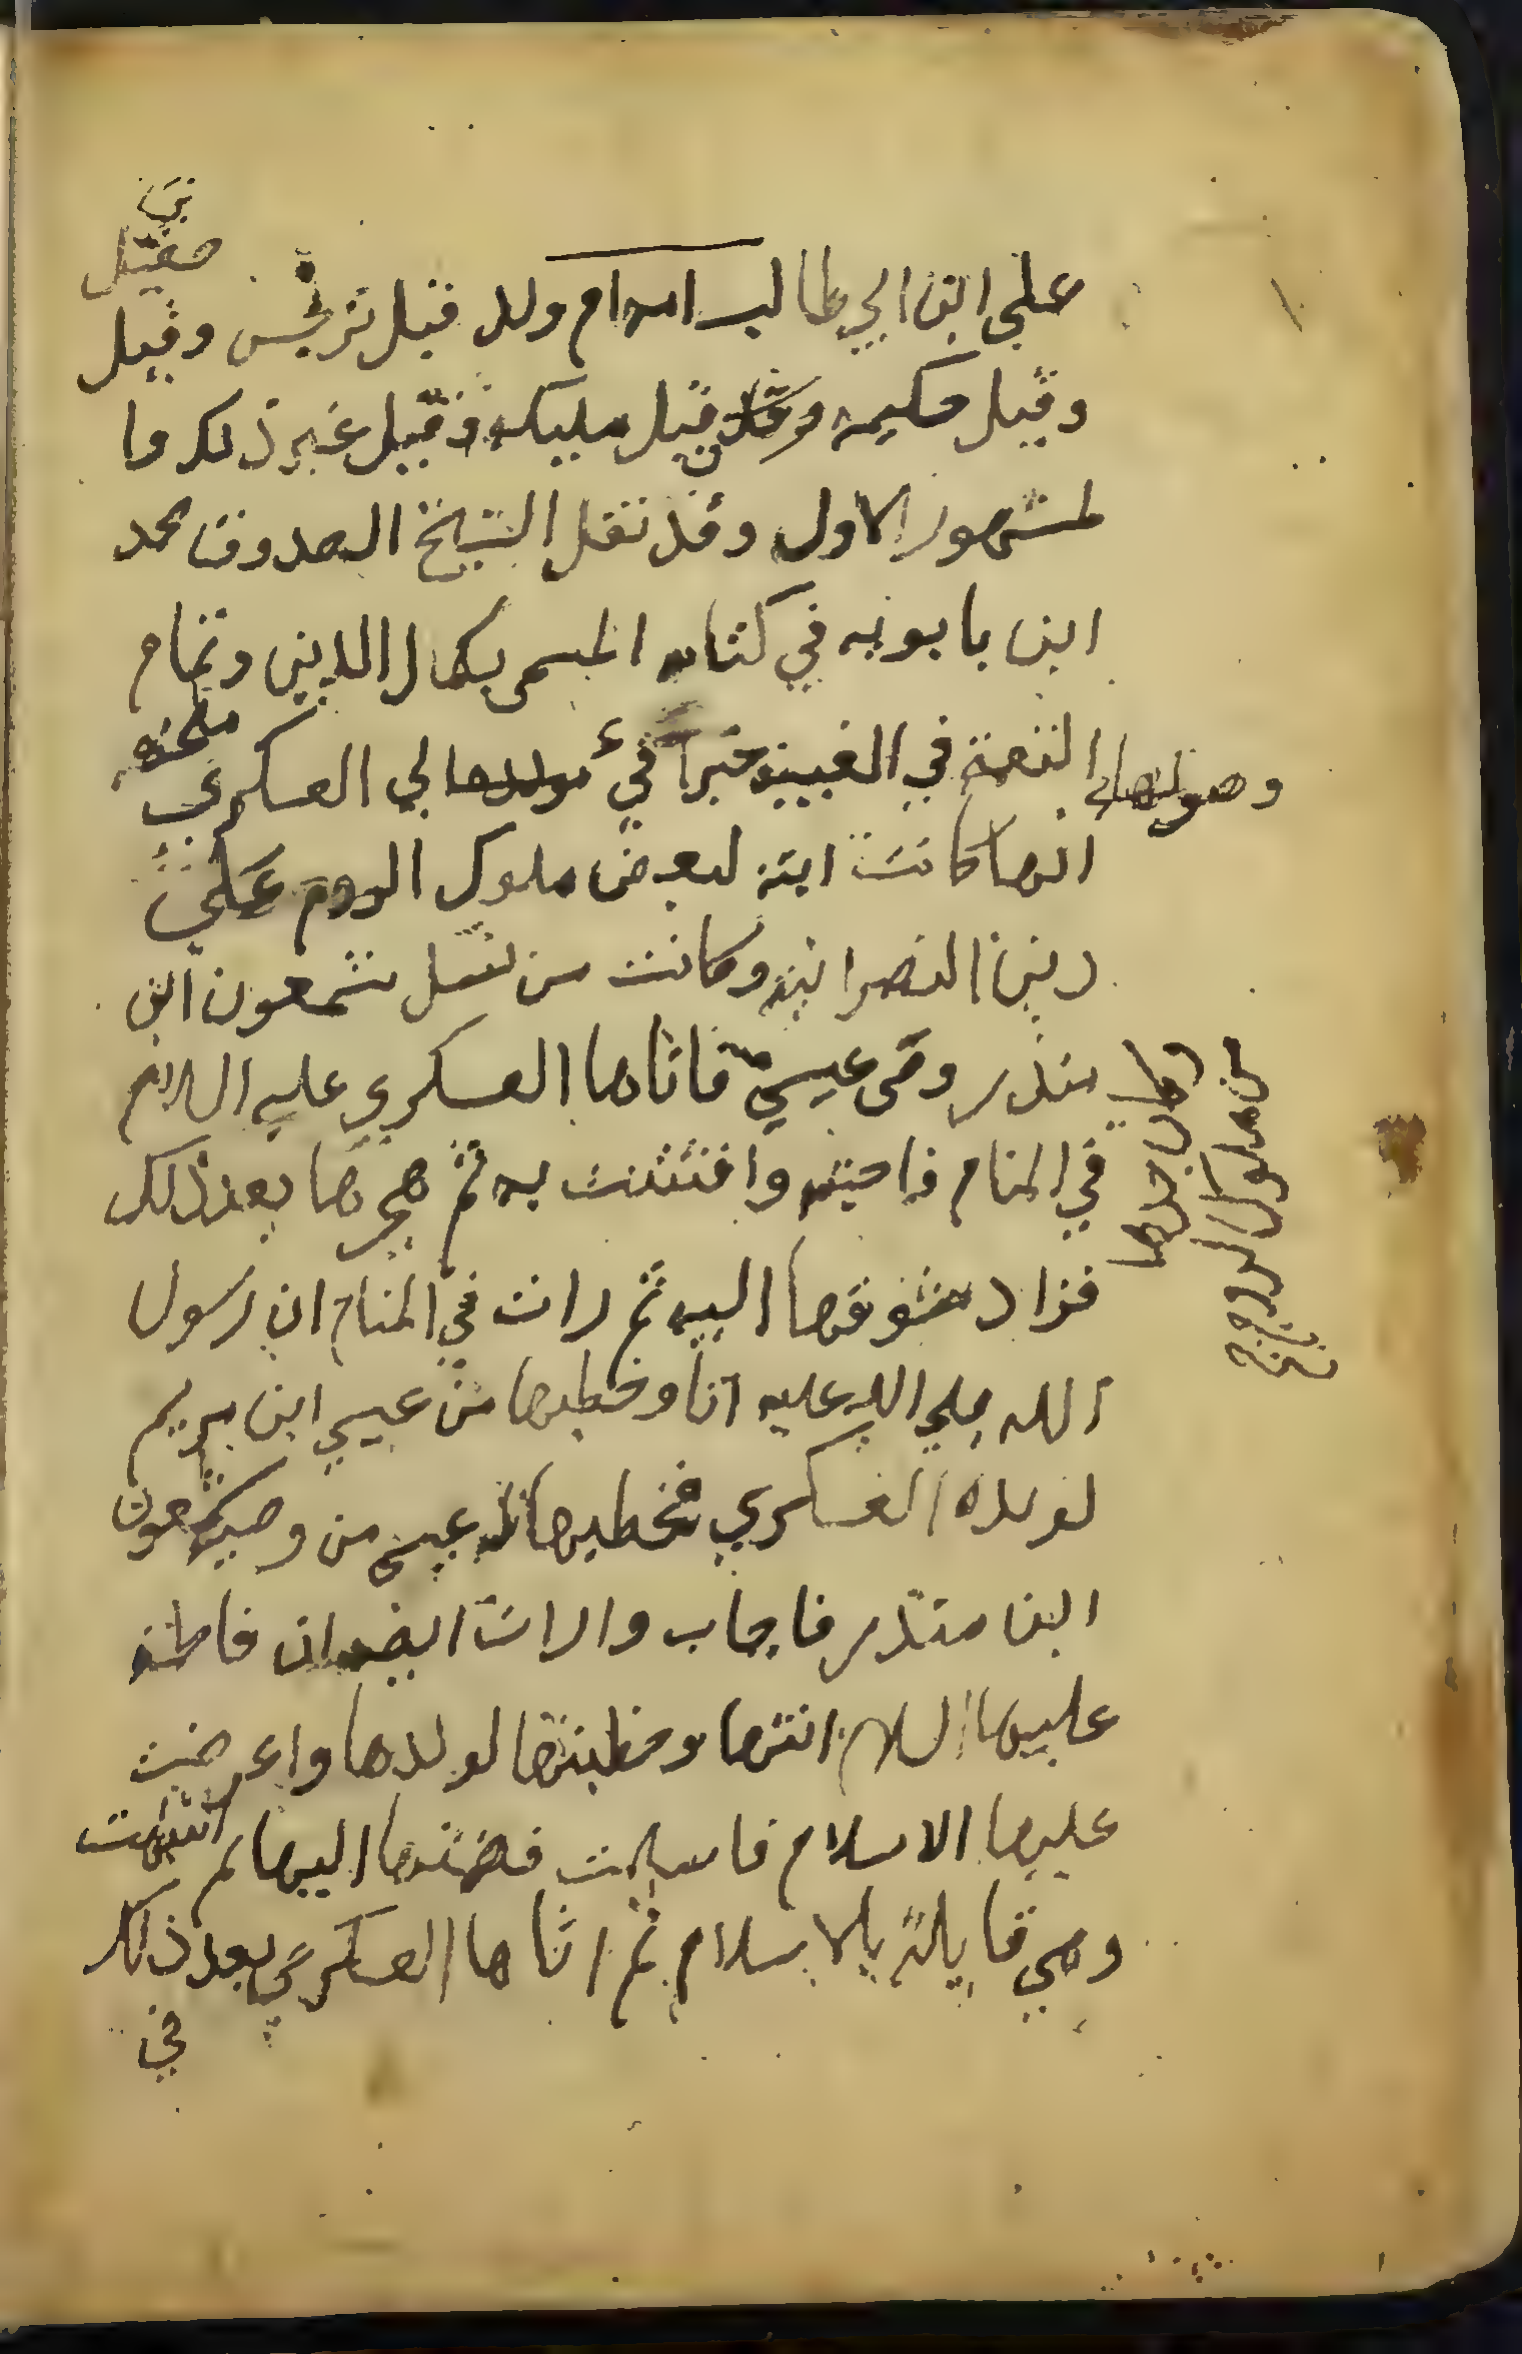 صقيل
علي ابن ابي طالب ام ولد قيل نرجس وقيل
وقيل حكيمه و قيل مليكه وقيل غير ذلك وا
لمشهور الاول وقد نقل الشيخ الصدوق محمد
ابن بابويه في كتابه المسمى بكمال الدين وتمام
النعمة في الغيبة خبرا في وصولها الى العسكري ملخصه
انها كانت ابنة لبعض ملوك الروم علي
دين النصرانيه وكانت من نسل شمعون ابن
منذر وصى عيسى فاتاها العسكري عليه السلام
وكان جدها
من ملوك الروم
في المنام فاحبته وافتتنت به ثم هجرها بعد ذلك
فزاد شوقها اليه ثم رات في المنام ان رسول
الله صلي الله عليه اتا وخطبها من عيسي ابن مريم
لولده العسكري فخطبها له عيسى من وصيه شمعون
ابن منذر فاجاب والرات ايضا ان فاطمة
عليها السلام اتتها وخطبتها لولدها واعرضت
عليها الاسلام فاسلمت فضمتها اليها ثم انتبهت
وهي قايلة بالاسلام ثم اتاها العسكري بعد ذلك
في